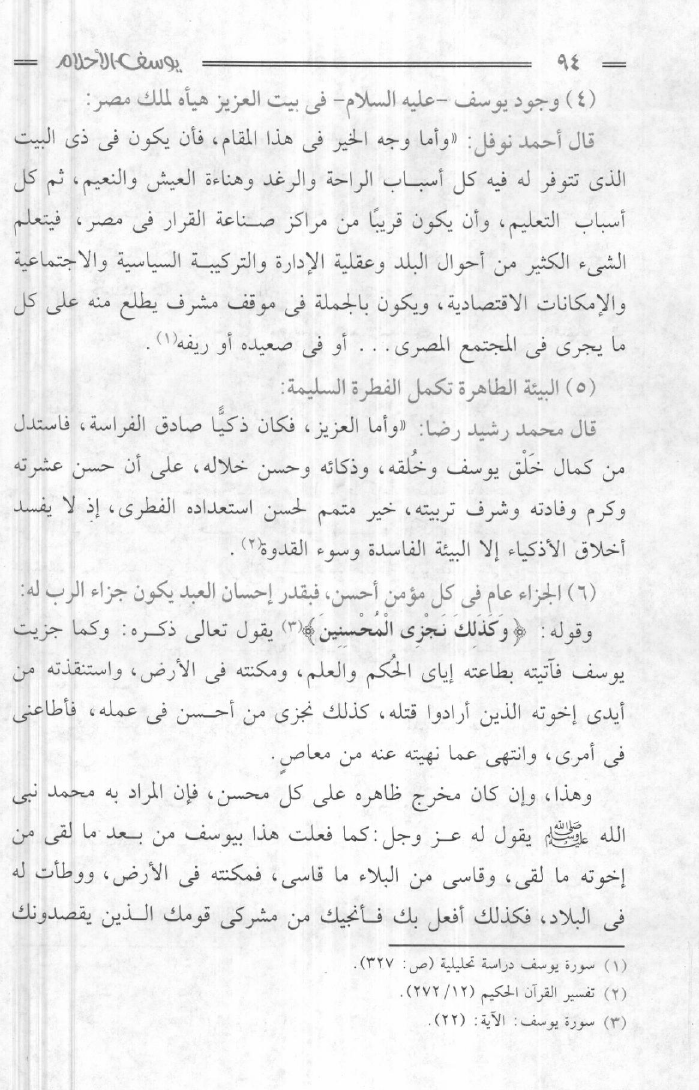 ٩٤ يوسف الأحلام
(٤) وجود يوسف -عليه السلام- فى بيت العزيز هيأه لملك مصر:
قال أحمد نوفل: «وأما وجه الخير فى هذا المقام، فأن يكون فى ذى البيت
الذى تتوفر له فيه كل أسباب الراحة والرغد وهناءة العيش والنعيم، ثم كل
أسباب التعليم، وأن يكون قريبًا من مراكز صناعة القرار فى مصر، فيتعلم
الشىء الكثير من أحوال البلد وعقلية الإدارة والتركيبة السياسية والاجتماعية
والإمكانات الاقتصادية، ويكون بالجملة فى موقف مشرف يطلع منه على كل
ما يجرى فى المجتمع المصرى... أو فى صعيده أو ريفه(١).
(٥) البيئة الطاهرة تكمل الفطرة السليمة:
قال محمد رشيد رضا: «وأما العزيز، فكان ذكيًّا صادق الفراسة، فاستدل
من كمال خَلْق يوسف وخُلقه، وذكائه وحسن خلاله، على أن حسن عشرته
وكرم وفادته وشرف تربيته، خير متمم لحسن استعداده الفطرى، إذ لا يفسد
أخلاق الأذكياء إلا البيئة الفاسدة وسوء القدوة(٢).
(٦) الجزاء عام فى كل مؤمن أحسن، فبقدر إحسان العبد يكون جزاء الرب له:
وقوله: ﴿وَكَذَلِكَ نَجْزِى الْمُحْسِنِينَ﴾(٣) يقول تعالى ذكره: وكما جزيت
يوسف فآتيته بطاعته إياى الحُكم والعلم، ومكنته فى الأرض، واستنقذته من
أيدى إخوته الذين أرادوا قتله، كذلك نجزى من أحسن فى عمله، فأطاعنى
فى أمرى، وانتهى عما نهيته عنه من معاصٍ.
وهذا، وإن كان مخرج ظاهره على كل محسن، فإن المراد به محمد نبى
الله ﷺ يقول له عز وجل: كما فعلت هذا بيوسف من بعد ما لقى من
إخوته ما لقى، وقاسى من البلاء ما قاسى، فمكنته فى الأرض، ووطأت له
فى البلاد، فكذلك أفعل بك فأنجيك من مشركى قومك الذين يقصدونك
(١) سورة يوسف دراسة تحليلية (ص: ٣٢٧).
(٢) تفسير القرآن الحكيم (٢٧٢/١٢).
(٣) سورة يوسف: الآية: (٢٢).